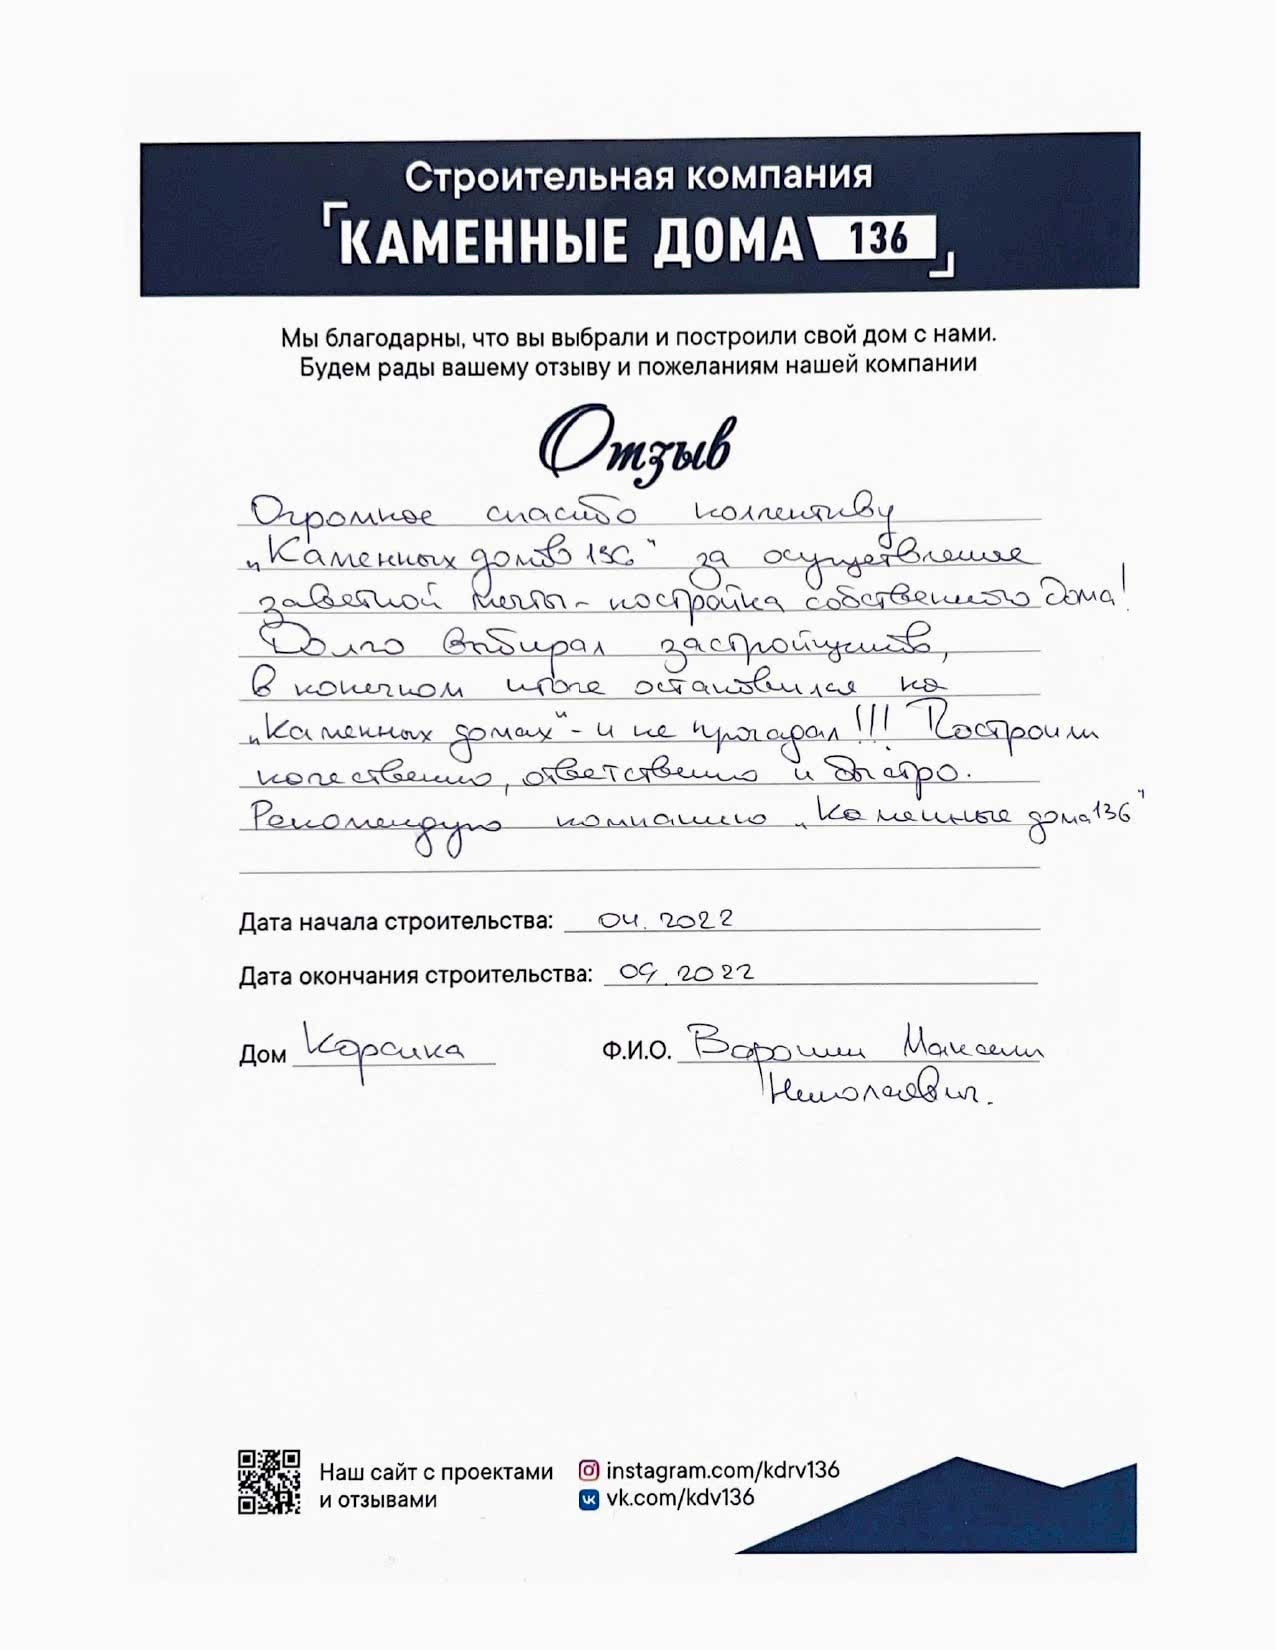 Строительная компания
КАМЕННЫЕ ДОМА 136
Мы благодарны, что вы выбрали и построили свой дом с нами.
Будем рады вашему отзыву и пожеланиям нашей компании
Отзыв
Огромное спасибо коллективу
„Каменных домов 136" за осуществление
заветной мечты - постройка собственного дома!
Долго выбирал застройщиков,
в конечном итоге остановился на
„Каменных домах" - и не прогадал!!! Построили
качественно, ответственно и быстро.
Рекомендую компанию „Каменные дома 136"
Дата начала строительства: 04. 2022
Дата окончания строительства: 09. 2022
Дом Корсика Ф.И.О. Воронин Максим
Николаевич.
Наш сайт с проектами
и отзывами
instagram.com/kdrv136
vk.com/kdv136